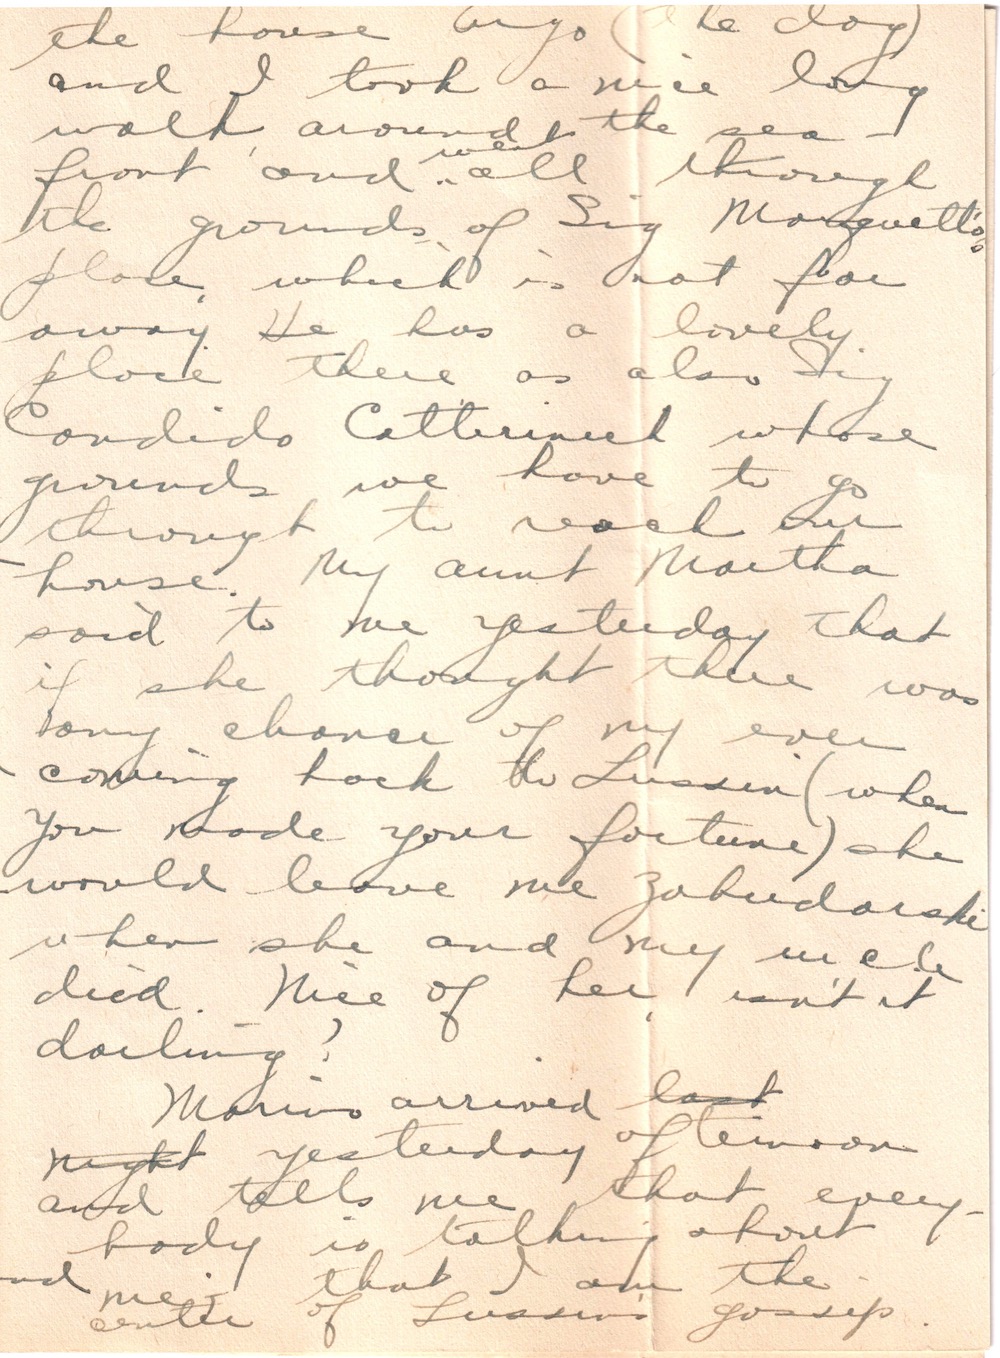 the house Argo (the dog)
and I took a nice long
walk, around the sea-
front and went all through
the grounds of Sig Morguetto's
place, which is not far
away. He has a lovely
place there as also Sig
Candido Catterinich whose
grounds we have to go
through to reach our
house. My aunt Martha
said to me yesterday that
if she thought there was
any chance of my ever
coming back to Lussin (when
you made your fortune) she
would leave me Zabudarski
when she and my uncle
died. Nice of her, isn't it
darling?
Marino arrived last
night yesterday afternoon
and tells me that every-
body is talking about
me; and that I am the
center of Lussin's gossip.